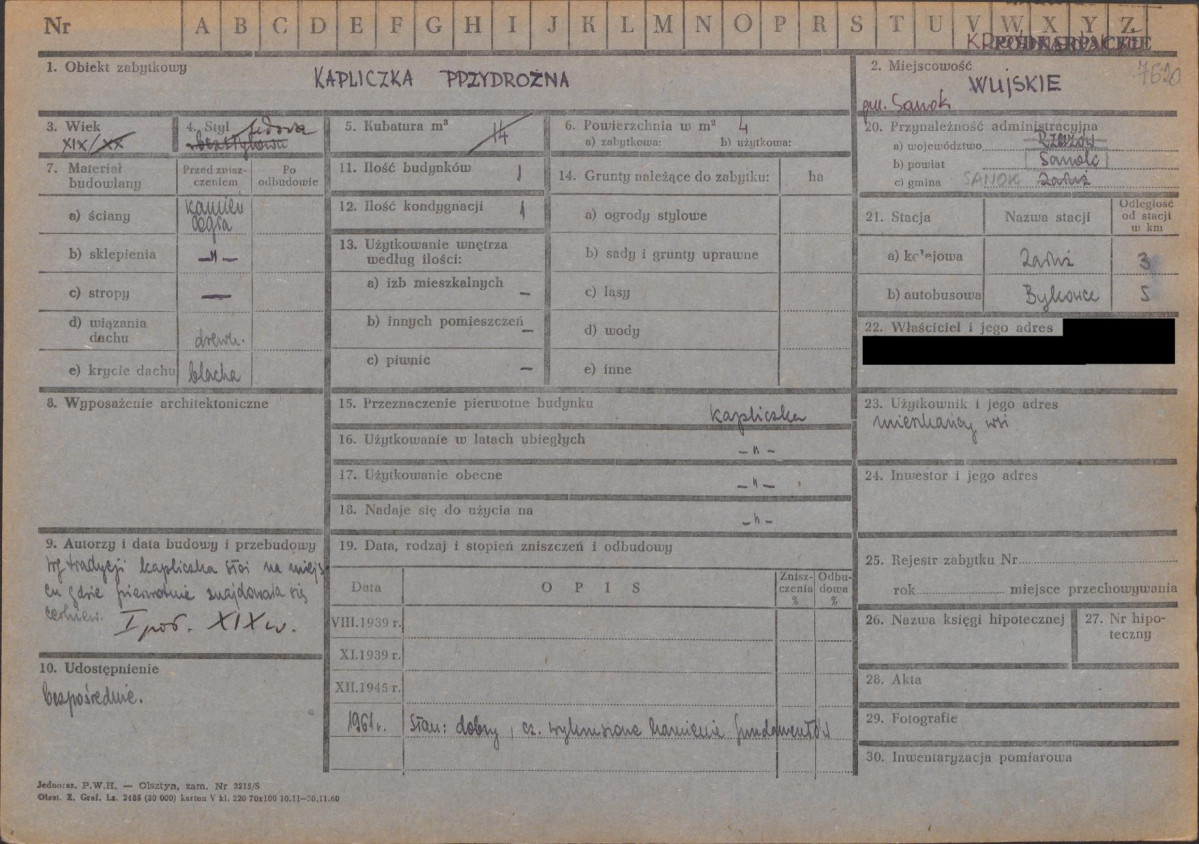 Nr A B C D E F G H I J K L M N O P R S T U V W X Y Z
PODKARPACKIE
1. Obiekt zabytkowy KAPLICZKA PPZYDROŻNA
2. Miejscowość WUJSKIE 7620
gm. Sanok
3. Wiek XIX/XX
4. Styl
bezstylowa
5. Kubatura m³ 14
6. Powierzchnia w m² 4
a) zabytkowa: b) użytkowa:
7. Materiał budowlany
Przed zniszczeniem
Po odbudowie
a) ściany kamień cegła
b) sklepienia —„—
c) stropy —
d) wiązania dachu drewn.
e) krycie dachu blacha
8. Wyposażenie architektoniczne
9. Autorzy i data budowy i przebudowy
wg tradycji kapliczka stoi na miejs
cu gdzie pierwotnie znajdowała się
cerkiew. I poł. XIX w.
10. Udostępnienie
bezpośrednie.
11. Ilość budynków 1
12. Ilość kondygnacji 1
13. Użytkowanie wnętrza
według ilości:
a) izb mieszkalnych —
b) innych pomieszczeń —
c) piwnic —
14. Grunty należące do zabytku: ha
a) ogrody stylowe
b) sady i grunty uprawne
c) lasy
d) wody
e) inne
15. Przeznaczenie pierwotne budynku kapliczka
16. Użytkowanie w latach ubiegłych —„—
17. Użytkowanie obecne —„—
18. Nadaje się do użycia na —„—
19. Data, rodzaj i stopień zniszczeń i odbudowy
Data O P I S Zniszczenia % Odbudowa %
VIII.1939 r.
XI.1939 r.
XII.1945 r.
1961 r. Stan: dobry, cz. wykruszone kamienie fundamentów
20. Przynależność administracyjna
a) województwo Rzeszów
b) powiat Sanok
c) gmina SANOK Załuż
21. Stacja Nazwa stacji Odległość od stacji w km
a) kolejowa Załuż 3
b) autobusowa Bykowce 5
22. Właściciel i jego adres
23. Użytkownik i jego adres
mieszkańcy wsi
24. Inwestor i jego adres
25. Rejestr zabytku Nr
rok miejsce przechowywania
26. Nazwa księgi hipotecznej
27. Nr hipoteczny
28. Akta
29. Fotografie
30. Inwentaryzacja pomiarowa
Jednoraz. P.W.H. — Olsztyn, zam. Nr 3215/S
Olszt. Z. Graf. Lz. 2488 (30 000) karton V kl. 220 70x100 10.11—30.11.60